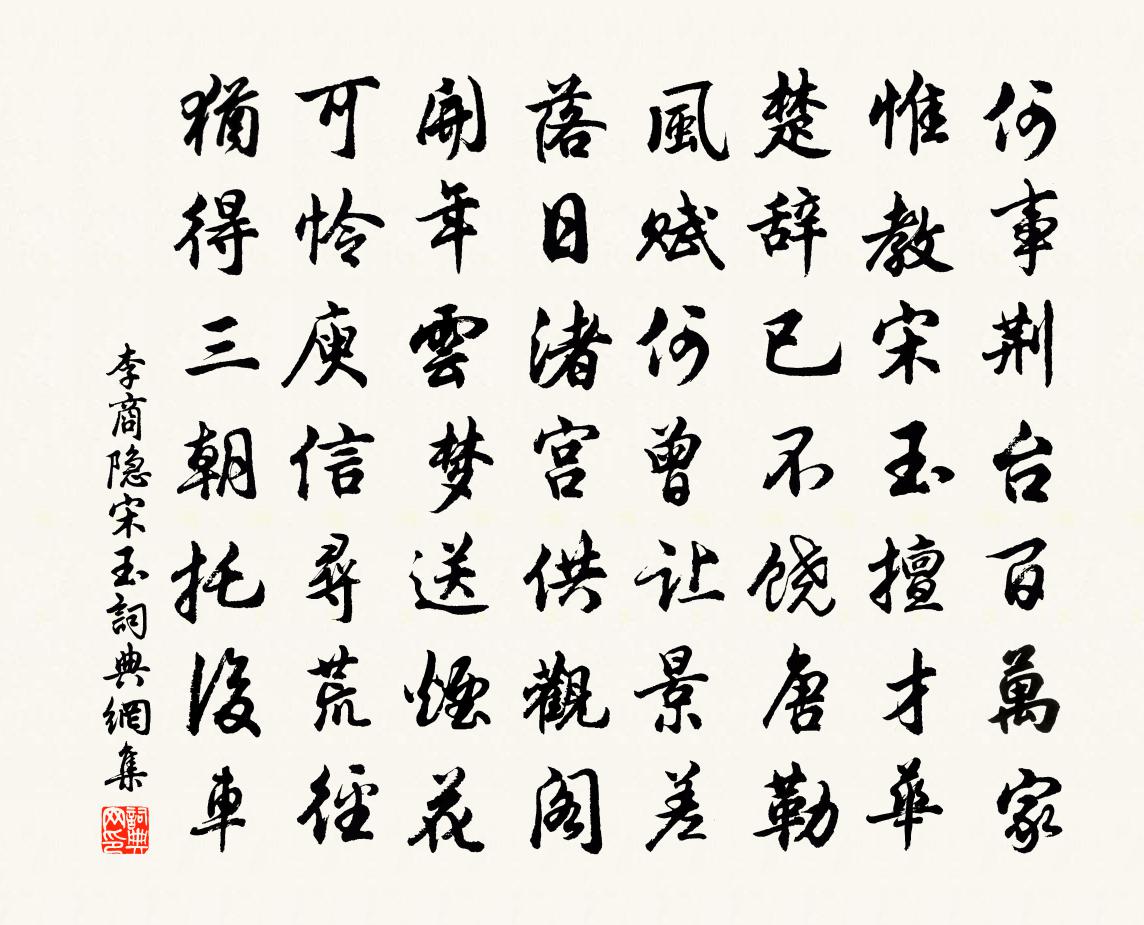 何事荆台百萬家
惟教宋玉擅才華
楚辞已不饶唐勒
風赋何曾让景差
落日渚宫供觀阁
開年雲梦送煙花
可怜庾信尋荒径
猶得三朝托後車
李商隐宋玉詞典網集
詞典网印